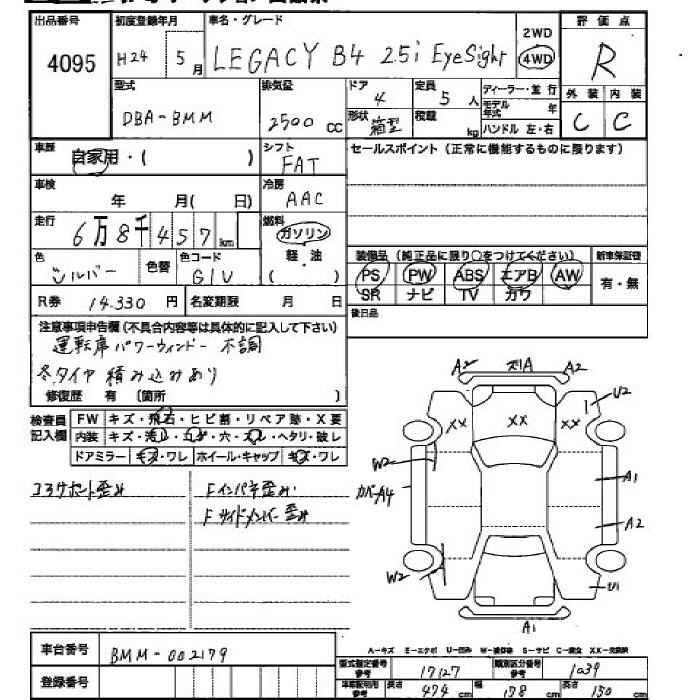 出品番号 初度登録年月 車名・グレード 評価点
4095 H24 5月 LEGACY B4 2.5i EyeSight 2WD 4WD R
型式 排気量 ドア 定員 ディーラー・並行 外装 内装
DBA-BMM 2500 cc 4 5人 モデル年式 年 C C
形状 箱型 積載 kg ハンドル 左・右
車歴 自家用・( ) シフト FAT セールスポイント(正常に機能するものに限ります)
車検 年 月( 日) 冷房 AAC
走行 6万8千457km 燃料 ガソリン 軽・油 ( )
色 シルバー 色替 色コード G1U
装備品(純正品に限り○をつけてください) 新車保証書
PS PW ABS エアB AW 有・無
SR ナビ TV カワ
R券 14.330円 名変期限 月 日 後日品
注意事項申告欄(不具合内容等は具体的に記入して下さい)
運転席パワーウィンドー不調
冬タイヤ積み込みあり
修復歴 有 (箇所 )
検査員記入欄 FW キズ・飛石・ヒビ割・リペア跡・X要
内装 キズ・汚れ・コゲ・穴・スレ・ヘタリ・破レ
ドアミラー キズ・ワレ ホイール・キャップ キズ・ワレ
コアサポート歪み Fインパネ歪み
Fサイドメンバー歪み
A2 スリA A2
U2
XX XX XX
W2 A1
カバーA4
A2
W2 U1
A1
A-キズ E-エクボ U-凹み W-補修跡 S-サビ C-腐食 XX-交換済
車台番号 BMM-002179
型式指定番号 参考 17127 類別区分番号 参考 1039
登録番号 車庫証明用 参考 長さ 474cm 幅 178cm 高さ 150cm